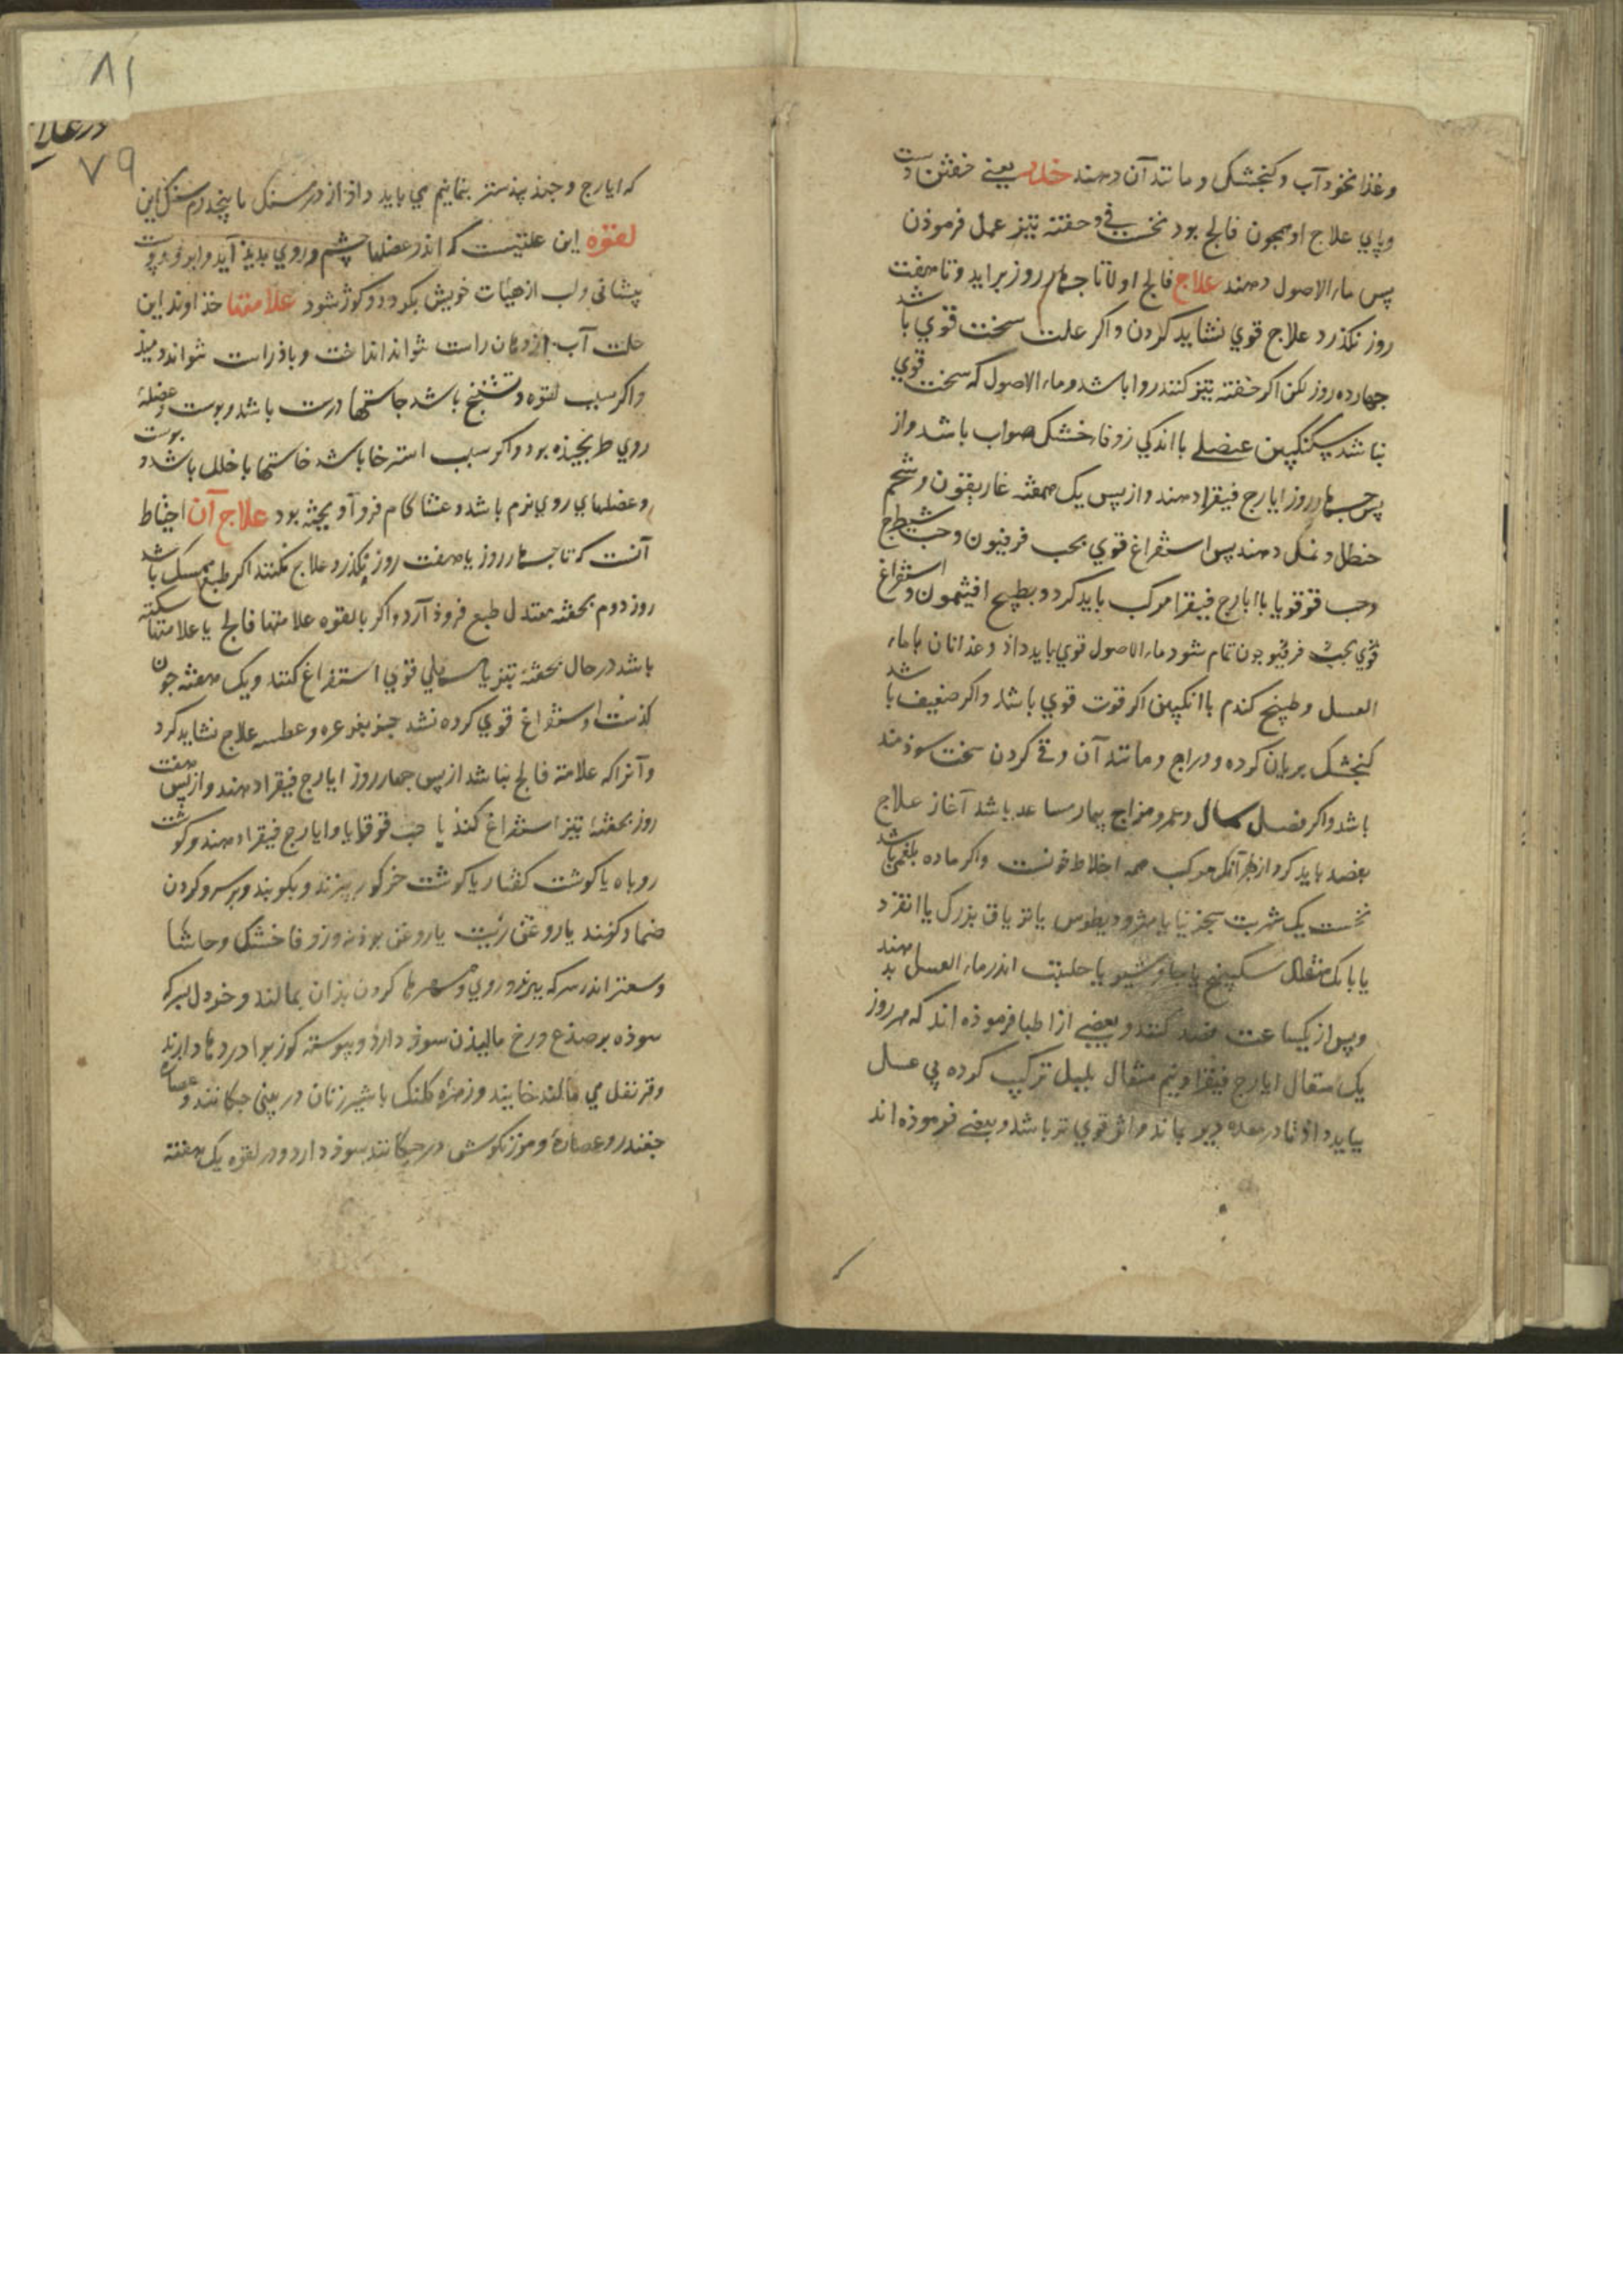 وغذا نخود آب وکنجشک ومانند آن دهند خدر یعنے خفتن دست
وپاي علاج او همچون فالج بود نخست قی وحقنه تیز عمل فرموذن
پس ماء الاصول دهند علاج فالج اولا تا جهار روز براید وتا هفت
روز نکذرد علاج قوي نشاید کردن واکر علت سخت قوي باشد
جهارده روز لکن اکر حقنه تیز کنند روا باشد وماء الاصول که سخت قوي
نباشد سکنکبین عنصلے با اندکي زوفاء خشک صواب باشد واز
پس جهار روز ایارج فیقرا دهند واز پس یک هفته غاریقون وشحم
حنظل و دهند پس استفراغ قوي بحب فرفیون وحب شیطرج
وحب قوقویا با ایارج فیقرا مرکب باید کرد وبطبیخ افیثمون واستفراغ
قوي بحب فرفیو جون تمام شود ماء الاصول قوي باید داذ وغذا نان با ماء
العسل وطبیخ کندم با انکبین اکر قوت قوي باشد واکر ضعیف باشد
کنجشک بریان کرده ودراج ومانند آن وقے کردن سخت سوذمند
باشد واکر فصل سال وعمر ومزاج بیمار مساعد باشد آغاز علاج
بفصد باید کرد از بهر آنکه مرکب همه اخلاط خونست واکر ماده بلغمي باشد
نخست یک شربت سجزنیا یا مثرودیطوس یا تریاق بزرک یا انقردیا
یا یک مثقال سکبینج یا جاوشیر یا حلتیت اندر ماء العسل بدهند
وپس از یکساعت فصد کنند وبعضے از اطبا فرموذه اند که هر روز
یک مثقال ایارج فیقرا ونیم مثقال بلبل ترکیب کرده پي عسل
بباید داذ تا در معده دیر بماند واثر قوي تر باشد وبعضے فرموذه اند
۸۱
۷۹
که ایارج وجند بیذستر بنمانیم مي باید داذ از درمسنک تا پنجدرم سنکک این
لقوه این علتیست که اندر عضلها چشم وروي بدیذ آید وابرو وپوست
پیشانی ولب از هیئات خویش بکردد وکوژ شود علامتها خذاوند این
علت آب از دهان راست نتواند انداخت وباذ راست نتواند دمیذ
واکر سبب لقوه تشنج باشد حاستها درست باشد وپوست وعضلهٔ
روي طرنجیذه بود واکر سبب استرخا باشد حاستها با خلل باشد وپوست
وعضلهاي روي نرم باشد وغشا کام فرو آویخته بود علاج آن احتیاط
آنست که تا جهار روز یا هفت روز نکذرد علاج نکنند اکر طبع ممسک باشد
روز دوم بحقنه معتدل طبع فروذ آرد واکر با لقوه علامتها فالج یا علامتهاء سکته
باشد در حال بحقنهٔ تیز یا مسهلي قوي استفراغ کنند ویک هفته جون
کذشت واستفراغ قوي کرده نشد جز بغرغره وعطسه علاج نشاید کرد
وآنرا که علامة فالج نباشد از پس جهار روز ایارج فیقرا دهند واز پس هفت
روز بحقنهٔ تیز استفراغ کنذ یا حب قوقایا وایارج فیقرا دهند وکوشت
روباه یا کوشت کفتار یا کوشت خرکور بپزند وبکوبند وبر سر وکردن
ضماد کنند یا روغن زیت یا روغن بوذنه وزوفا خشک وحاشا
وسعتر اندر سرکه بپزند وروي وسر ها کردن بذان بمالند وخردل بسرکه
سوذه بر صذغ ورخ مالیذن سوذ دارذ وپیوسته کوزبوا در دهان دارند
وقرنفل مي مالند خایند وزهرهٔ کلنک با شیر زنان در بینی جکانند وعصارهٔ
جغندر وعصارهٔ ومرزنکوش در جکانند سوذ دارد ودر لقوه یک هفته